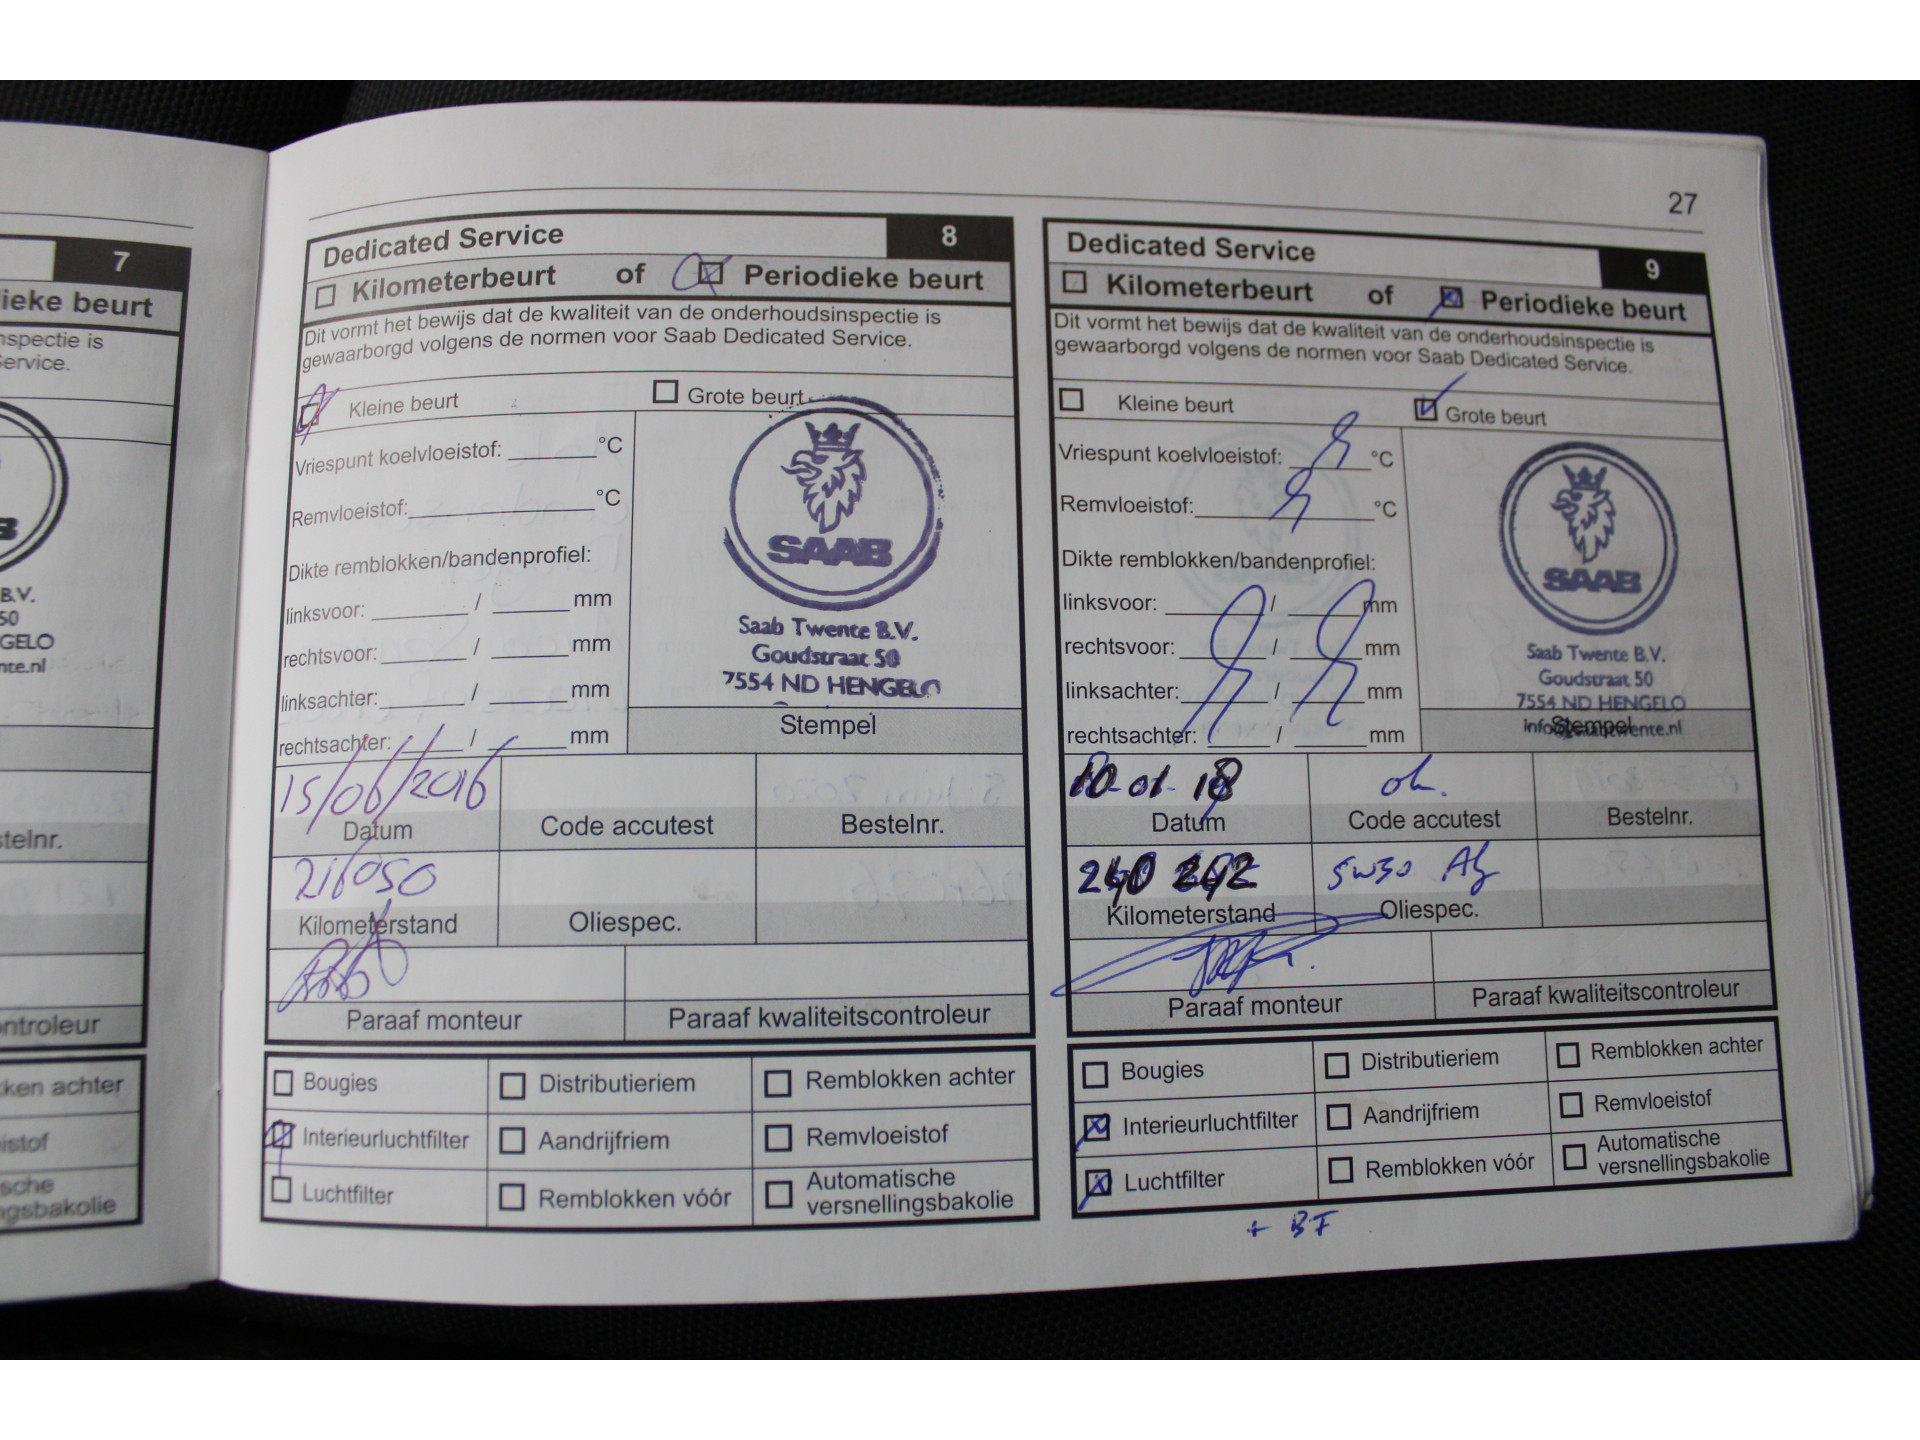 7
ieke beurt
nspectie is
ervice.
B.V.
50
GELO
nte.nl
telnr.
ntroleur
ken achter
istof
sche
ngsbakolie
27
Dedicated Service 8
Kilometerbeurt of Periodieke beurt
Dit vormt het bewijs dat de kwaliteit van de onderhoudsinspectie is
gewaarborgd volgens de normen voor Saab Dedicated Service.
Kleine beurt Grote beurt
Vriespunt koelvloeistof: °C
Remvloeistof: °C
Dikte remblokken/bandenprofiel:
linksvoor: / mm
rechtsvoor: / mm
linksachter: / mm
rechtsachter: / mm
SAAB
Saab Twente B.V.
Goudstraat 50
7554 ND HENGELO
Stempel
15/06/2016
Datum Code accutest Bestelnr.
216050
Kilometerstand Oliespec.
Paraaf monteur Paraaf kwaliteitscontroleur
Bougies Distributieriem Remblokken achter
Interieurluchtfilter Aandrijfriem Remvloeistof
Luchtfilter Remblokken vóór Automatische
versnellingsbakolie
Dedicated Service 9
Kilometerbeurt of Periodieke beurt
Dit vormt het bewijs dat de kwaliteit van de onderhoudsinspectie is
gewaarborgd volgens de normen voor Saab Dedicated Service.
Kleine beurt Grote beurt
Vriespunt koelvloeistof: °C
Remvloeistof: °C
Dikte remblokken/bandenprofiel:
linksvoor: / mm
rechtsvoor: / mm
linksachter: / mm
rechtsachter: / mm
SAAB
Saab Twente B.V.
Goudstraat 50
7554 ND HENGELO
Stempel
10-01-18 ok.
Datum Code accutest Bestelnr.
240 242 5W30
Kilometerstand Oliespec.
Paraaf monteur Paraaf kwaliteitscontroleur
Bougies Distributieriem Remblokken achter
Interieurluchtfilter Aandrijfriem Remvloeistof
Luchtfilter Remblokken vóór Automatische
versnellingsbakolie
+ BF